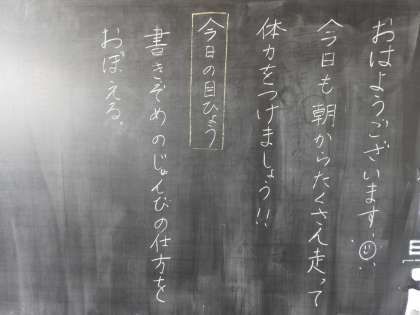 おはようございます。☺
今日も朝からたくさん走って
体力をつけましょう!!
今日の目ひょう
書きぞめのじゅんびの仕方を
おぼえる。